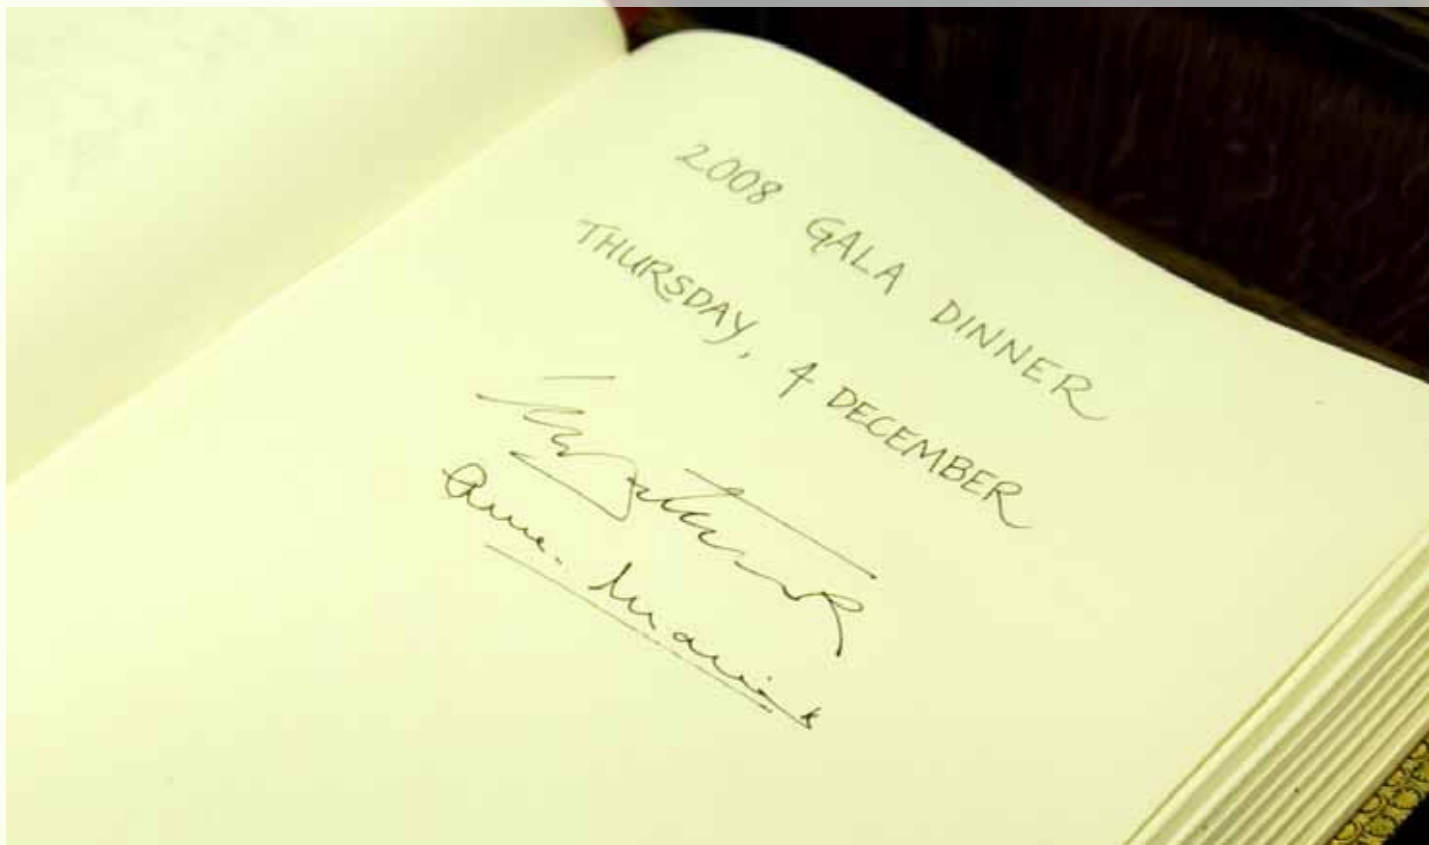 2008 GALA DINNER
THURSDAY, 4 DECEMBER
Anne-Marie